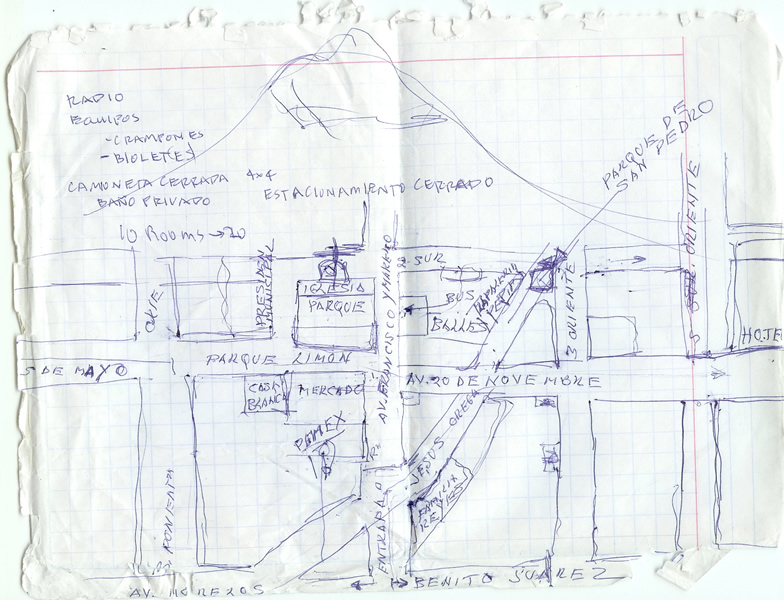 RADIO
EQUIPOS
- CRAMPONES
- BIOLETES
CAMIONETA CERRADA 4x4
BAÑO PRIVADO
ESTACIONAMIENTO CERRADO
10 ROOMS → 20
PARQUE DE
SAN PEDRO
ORIENTE
PRESIDEN
MUNICIPAL
IGLESIA
PARQUE
2 SUR
BUS
3 ORIENTE
HOTE
5 DE MAYO
PARQUE LIMON
AV. FRANCISCO Y MADERO
AV. 20 DE NOVEMBRE
CASA
BLANCA
MERCADO
PEMEX
JESUS ORTEGA
FAMILIA
REYES
PONIENTE
ENTRADA
AV. MORELOS
BENITO SUAREZ